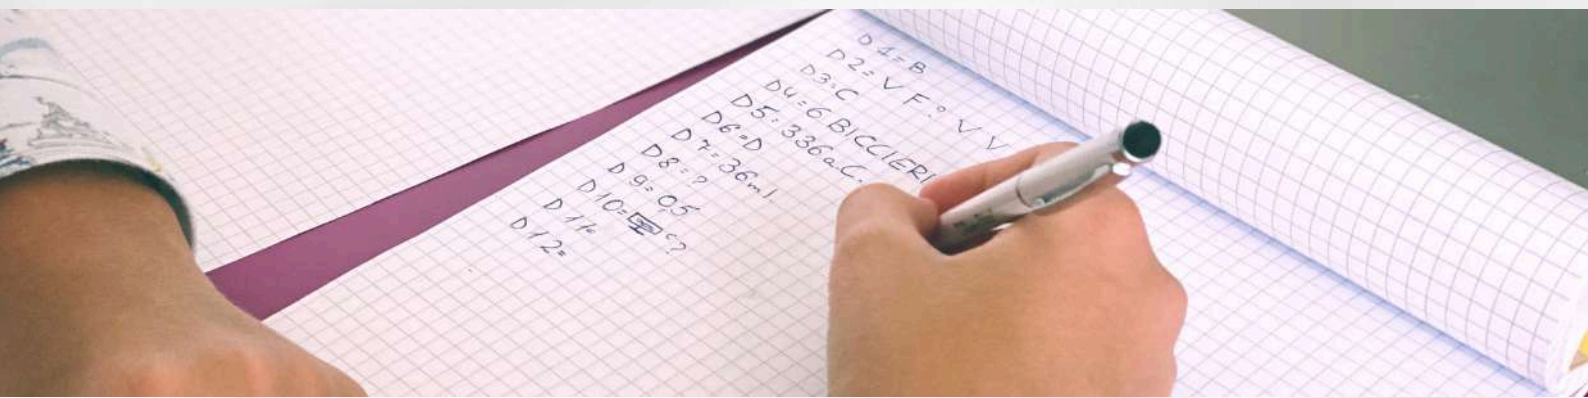 D1=B
D2= V F ? V V
D3=C
D4=6 BICCIERI
D5=336a.C.
D6=D
D7=36ml
D8=?
D9=0,5
D10= ?
D11=
D12=